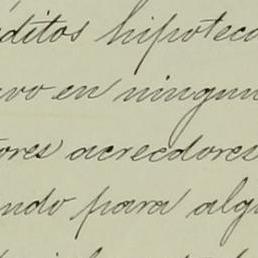 éditos hipoteca
vo en ningun
ores acreedores
ndo para alg